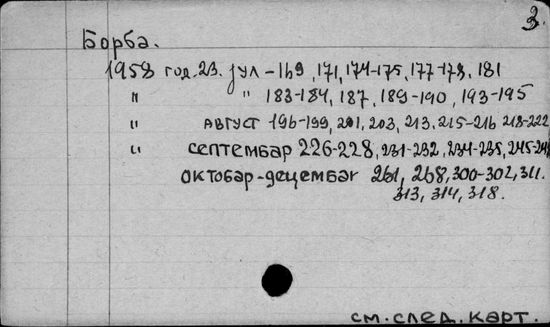 3.
Борба.
1958 год. 23. јул - 169, 171, 174-175, 177-178, 181
" " 183-184, 187, 189-190, 193-195
" август 196-199, 201, 203, 213, 215-216 218-222
" септембар 226-228, 231-232, 234-235, 245-246
октобар-децембаг 261, 268, 300-302, 311.
313, 314, 318.
см. след. карт.